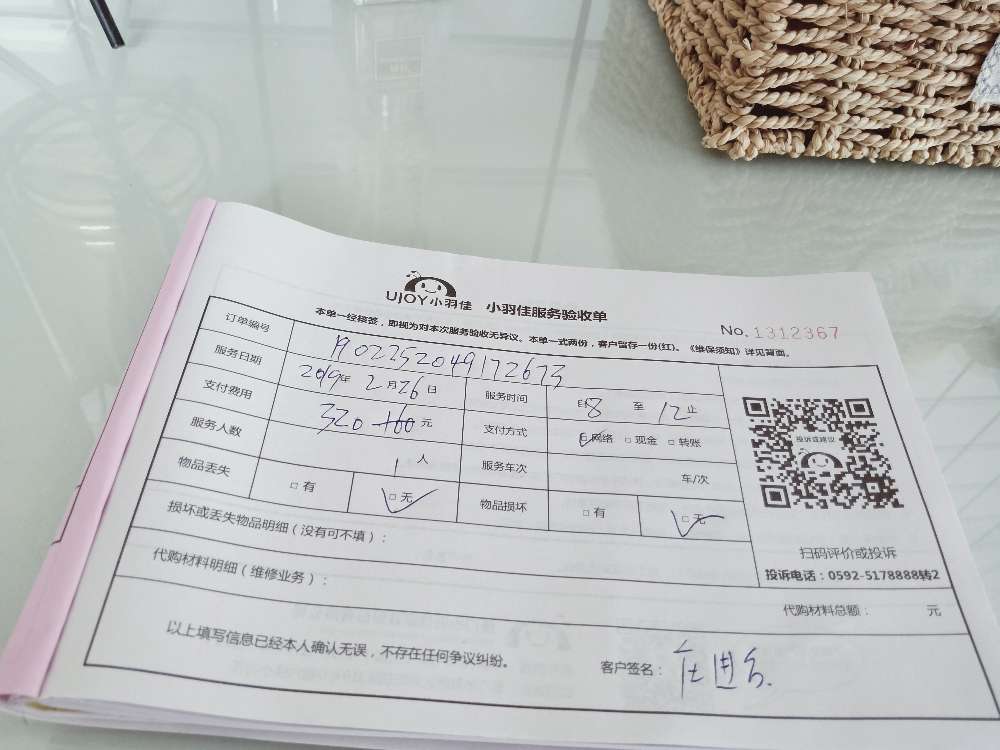 UJOY小羽佳 小羽佳服务验收单
No. 1312367
本单一经核签，即视为对本次服务验收无异议。本单一式两份，客户留存一份(红)。《维保须知》详见背面。
订单编号 1902252049172673
服务日期 2019年 2月26日 服务时间 自8 至 12止
支付费用 320+160元 支付方式 □网络 □现金 □转账
服务人数 1人 服务车次 车/次
物品丢失 □有 □无 物品损坏 □有 □无
投诉或建议
扫码评价或投诉
投诉电话：0592-5178888转2
损坏或丢失物品明细（没有可不填）：
代购材料明细（维修业务）：
代购材料总额： 元
以上填写信息已经本人确认无误，不存在任何争议纠纷。
客户签名：